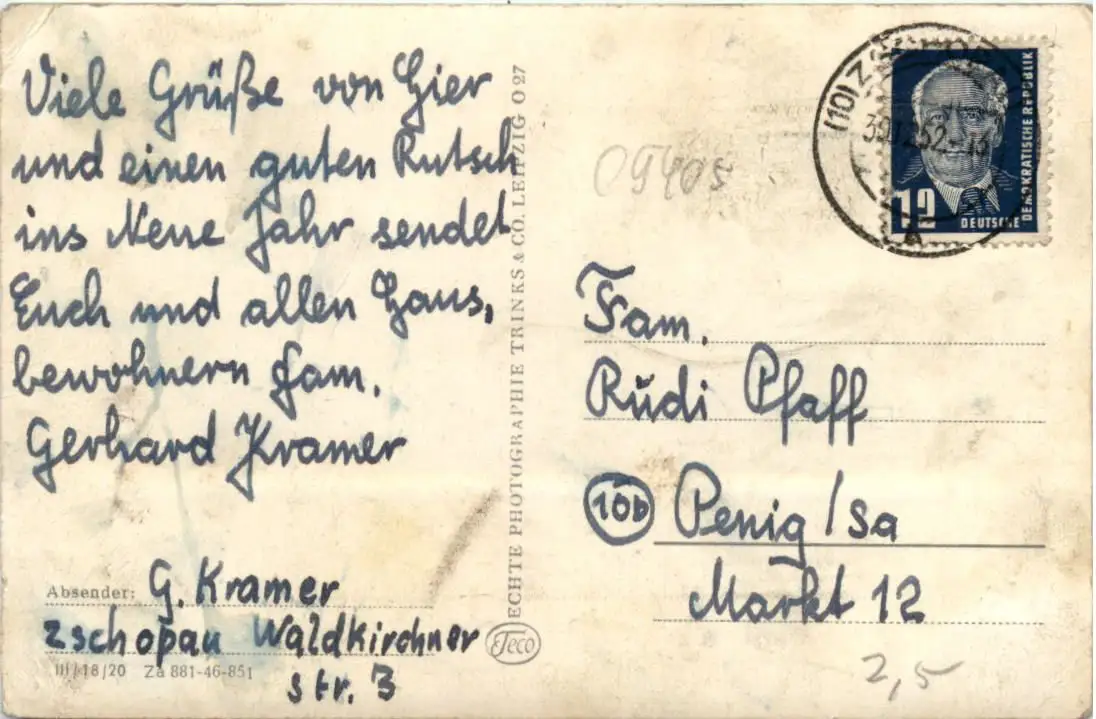 Viele Grüße von hier
und einen guten Rutsch
ins Neue Jahr sendet
Euch und allen Haus,
bewohnern Fam.
Gerhard Kramer
Absender: G. Kramer
Zschopau Waldkirchner
str. 3
III/18/20 Za 881-46-851
ECHTE PHOTOGRAPHIE TRINKS & CO. LEIPZIG O 27
Teco
09405
(10)
52
12
DEUTSCHE
DEMOKRATISCHE REPUBLIK
Fam.
Rudi Pfaff
10b Penig / Sa
Markt 12
2,5